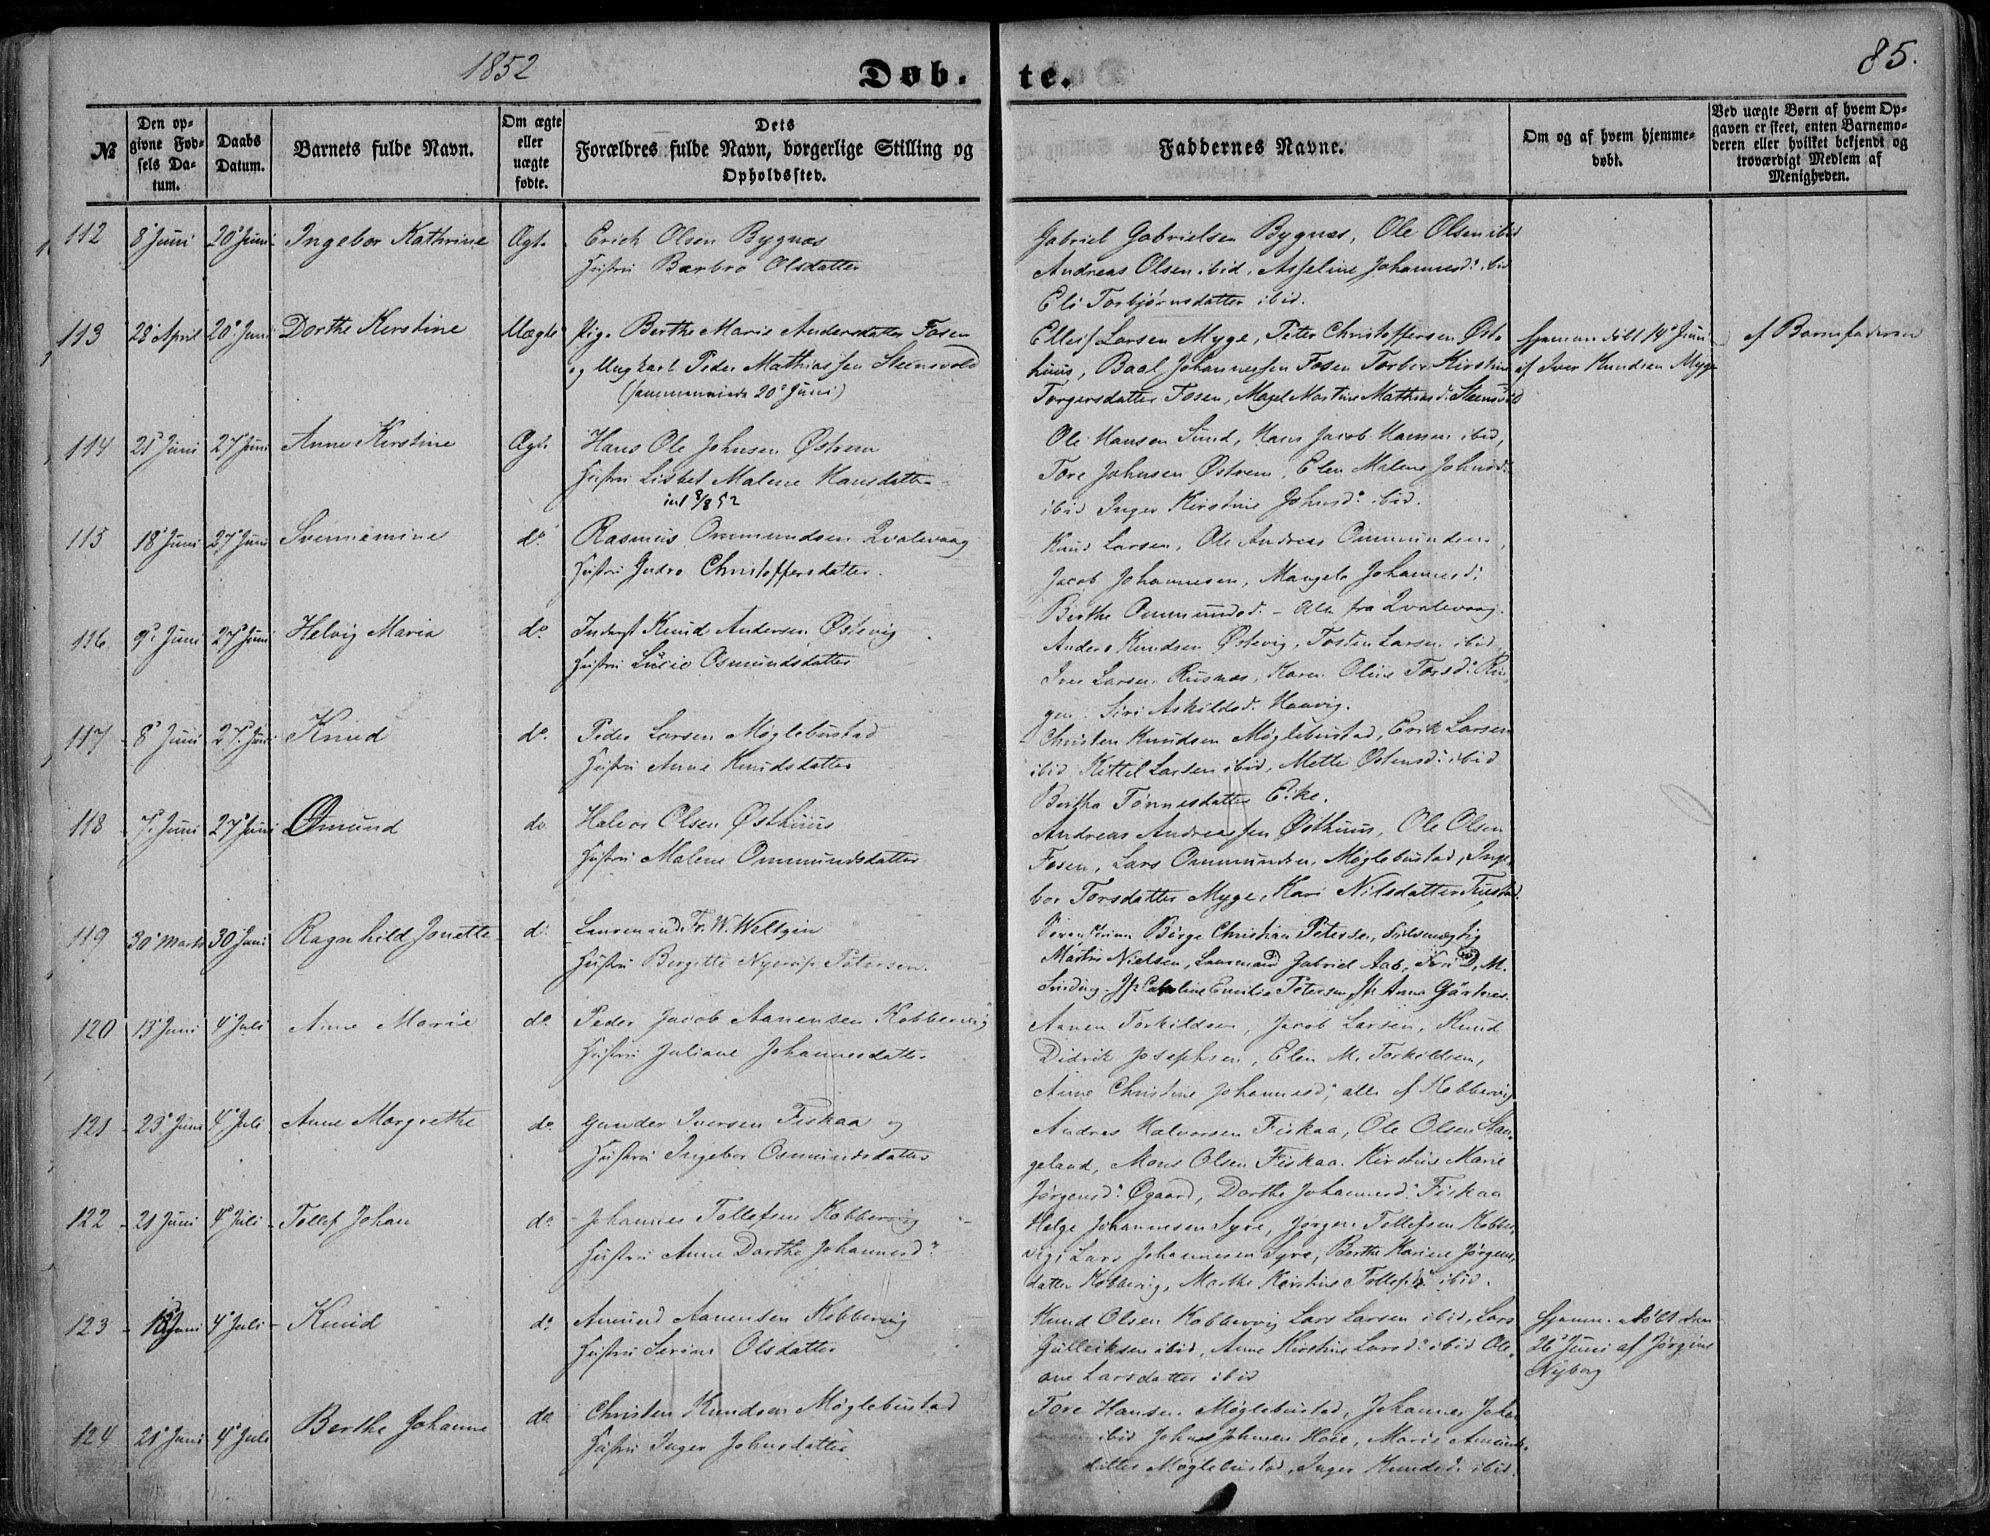 1852
Døb-
te.
85.
№
Den op-
givne Fød-
sels Da-
tum.
Daabs
Datum.
Barnets fulde Navn.
Om ægte
eller
uægte
fødte.
Dets
Forældres fulde Navn, borgerlige Stilling og
Opholdssted.
Faddernes Navne.
Om og af hvem hjemme-
døbt.
Ved uægte Børn af hvem Op-
gaven er skeet, enten Barnemo-
deren eller hvilket bekjendt og
troværdigt Medlem af
Menigheden.
112 8 Juni 20 Juni Ingebor Kathrine Ægt. Erich Olsen Bygnæs
Hustru Barbro Olsdatter
Gabriel Gabrielsen Bygnæs, Ole Olsen ibid
Andreas Olsen ibid, Asseline Johannesd: ibid
Eli Torbjørnsdatter ibid.
113 28 April 20 Juni Dorthe Kirstine Uægte Pige Berthe Marie Andersdatter Fosen
og Ungkarl Peder Mathiassen Steensvold
(sammenviede 20 Juni)
Ellef Larsen Myge, Peter Christoffersen Øst-
huus, Baal Johannessen Fosen Torber Kirstine
Torgersdatter Fosen, Margl Martine Mathiasd: Steensvold
Hjemmedøbt 14 Juni
af Iver Knudsen Myge
af Barnefaderen
114 21 Juni 27 Juni Anne Kirstine Ægt. Hans Ole Johnsen Østrem
Hustru Lisbet Malene Hansdatter
int 3/8 52
Ole Hansen Sund, Hans Jacob Hansen ibid,
Tore Johnsen Østrem, Elen Malene Johnsd:
ibid Inger Kirstine Johnsd: ibid.
115 18 Juni 27 Juni Svenniemine do. Rasmus Ommundsen Qvalevaag
Hustru Gudro Christoffersdatter.
Knud Larsen, Ole Andreas Ommundsen,
Jacob Johannesen, Mangela Johannesd:
Berthe Ommundsd. - Alle fra Qvalevaag.
116 9 Juni 27 Juni Helvig Maria do. Inderst Knud Andersen Østevig
Hustru Lucie Osmundsdatter
Anders Knudsen Østevig, Tosten Larsen ibid,
Iver Larsen Rusnæs, Karen Oline Torsd: Rin-
gen. Siri Askildsd. Haavig.
117 8 Juni 27 Juni Knud do. Peder Larsen Møglebustad
Hustru Anne Knudsdatter
Christen Knudsen Møglebustad, Erik Larsen
ibid Kittel Larsen ibid, Mette Østensd: ibid
Bertha Tønnesdatter Eike.
118 7 Juni 27 Juni Omund do. Halvor Olsen Østhuus
Hustru Malene Ommundsdatter
Andreas Andreassen Østhuus, Ole Olsen
Fosen, Lars Ommundsen Møglebustad, Inge-
bor Torsdatter Myge, Kari Nilsdatter
119 30 Marts 30 Juni Ragnhild Jonette d: Lensmand Fr. W. Weltzin
Hustru Birgitte Nyerup Petersen.
Børge Christian Petersen, Fuldmægtig
Martin Nielsen, Lensmand Gabriel Aab, D. M.
Sinding Jfr. Caroline Emilie Petersen, Jfr. Anna Gärtner.
120 13 Juni 4 Juli Anne Marie do. Peder Jacob Aanensen Kobbervig
Hustru Juliane Johannesdatter
Aanen Torkildsen, Jacob Larsen, Knud
Didrik Josephsen, Elen M. Torkildsen,
Anne Christine Johannesd; alle af Kobbervig
121 23 Juni 4 Juli Anne Margrethe do. Gunder Iversen Fiskaa og
Hustru Ingebor Osmundsdatter
Andres Halvorsen Fiskaa, Ole Olsen Stan-
geland, Mons Olsen Fiskaa. Kirstine Marie
Jørgensd: Øgaard, Dorthe Johannesd: Fiskaa
122 21 Juni 4 Juli Tollef Johan do. Johannes Tollefsen Kobbervig
Hustru Anne Dorthe Johannesd:
Helge Johannesen Syre, Jørgen Tollefsen Kobber-
vig, Lars Johannesen Syre, Berthe Karine Jørgens-
datter Kobbervig, Marthe Kirstine Tollefsd: ibid.
123 Juni 4 Juli Knud do. Amund Aanensen Kobbervig
Hustru Serine Olsdatter
Knud Olsen Kobbervig Lars Larsen ibid, Lars
Gulleiksen ibid, Anne Kirstine Larsd: ibid Ole-
ane Larsdatter ibid
Hjemmedøbt den
26 Juni af Jørgine
Nyborg
124 21 Juni 4 Juli Berthe Johanne do. Christen Knudsen Møglebustad
Hustru Inger Johnsdatter
Tore Hansen Møglebustad, Johannes Johan-
ibid Johan Johnsen Hoie, Maris Amunds-
datter Møglebustad, Inger Knudsd: ibid.